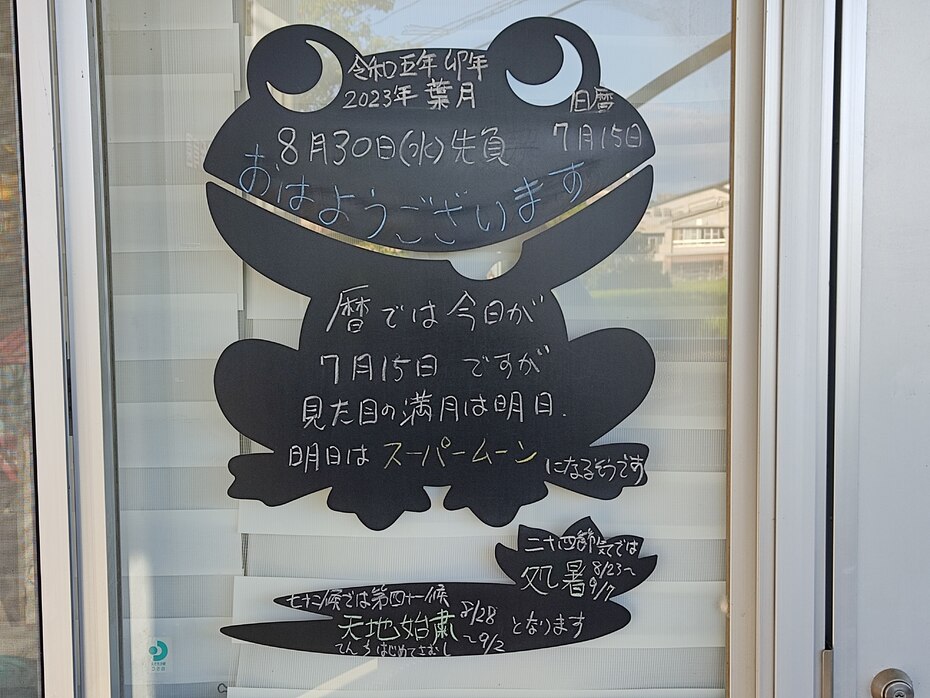 令和五年 卯年
2023年 葉月
旧暦
7月15日
8月30日(水)先負
おはようございます
暦では今日が
7月15日 ですが
見た目の満月は明日.
明日は スーパームーン になるそうです
二十四節気では
処暑 8/23〜
9/7
七十二候では第四十一候
天地始粛 8/28
〜9/2 となります
てんちはじめてさむし